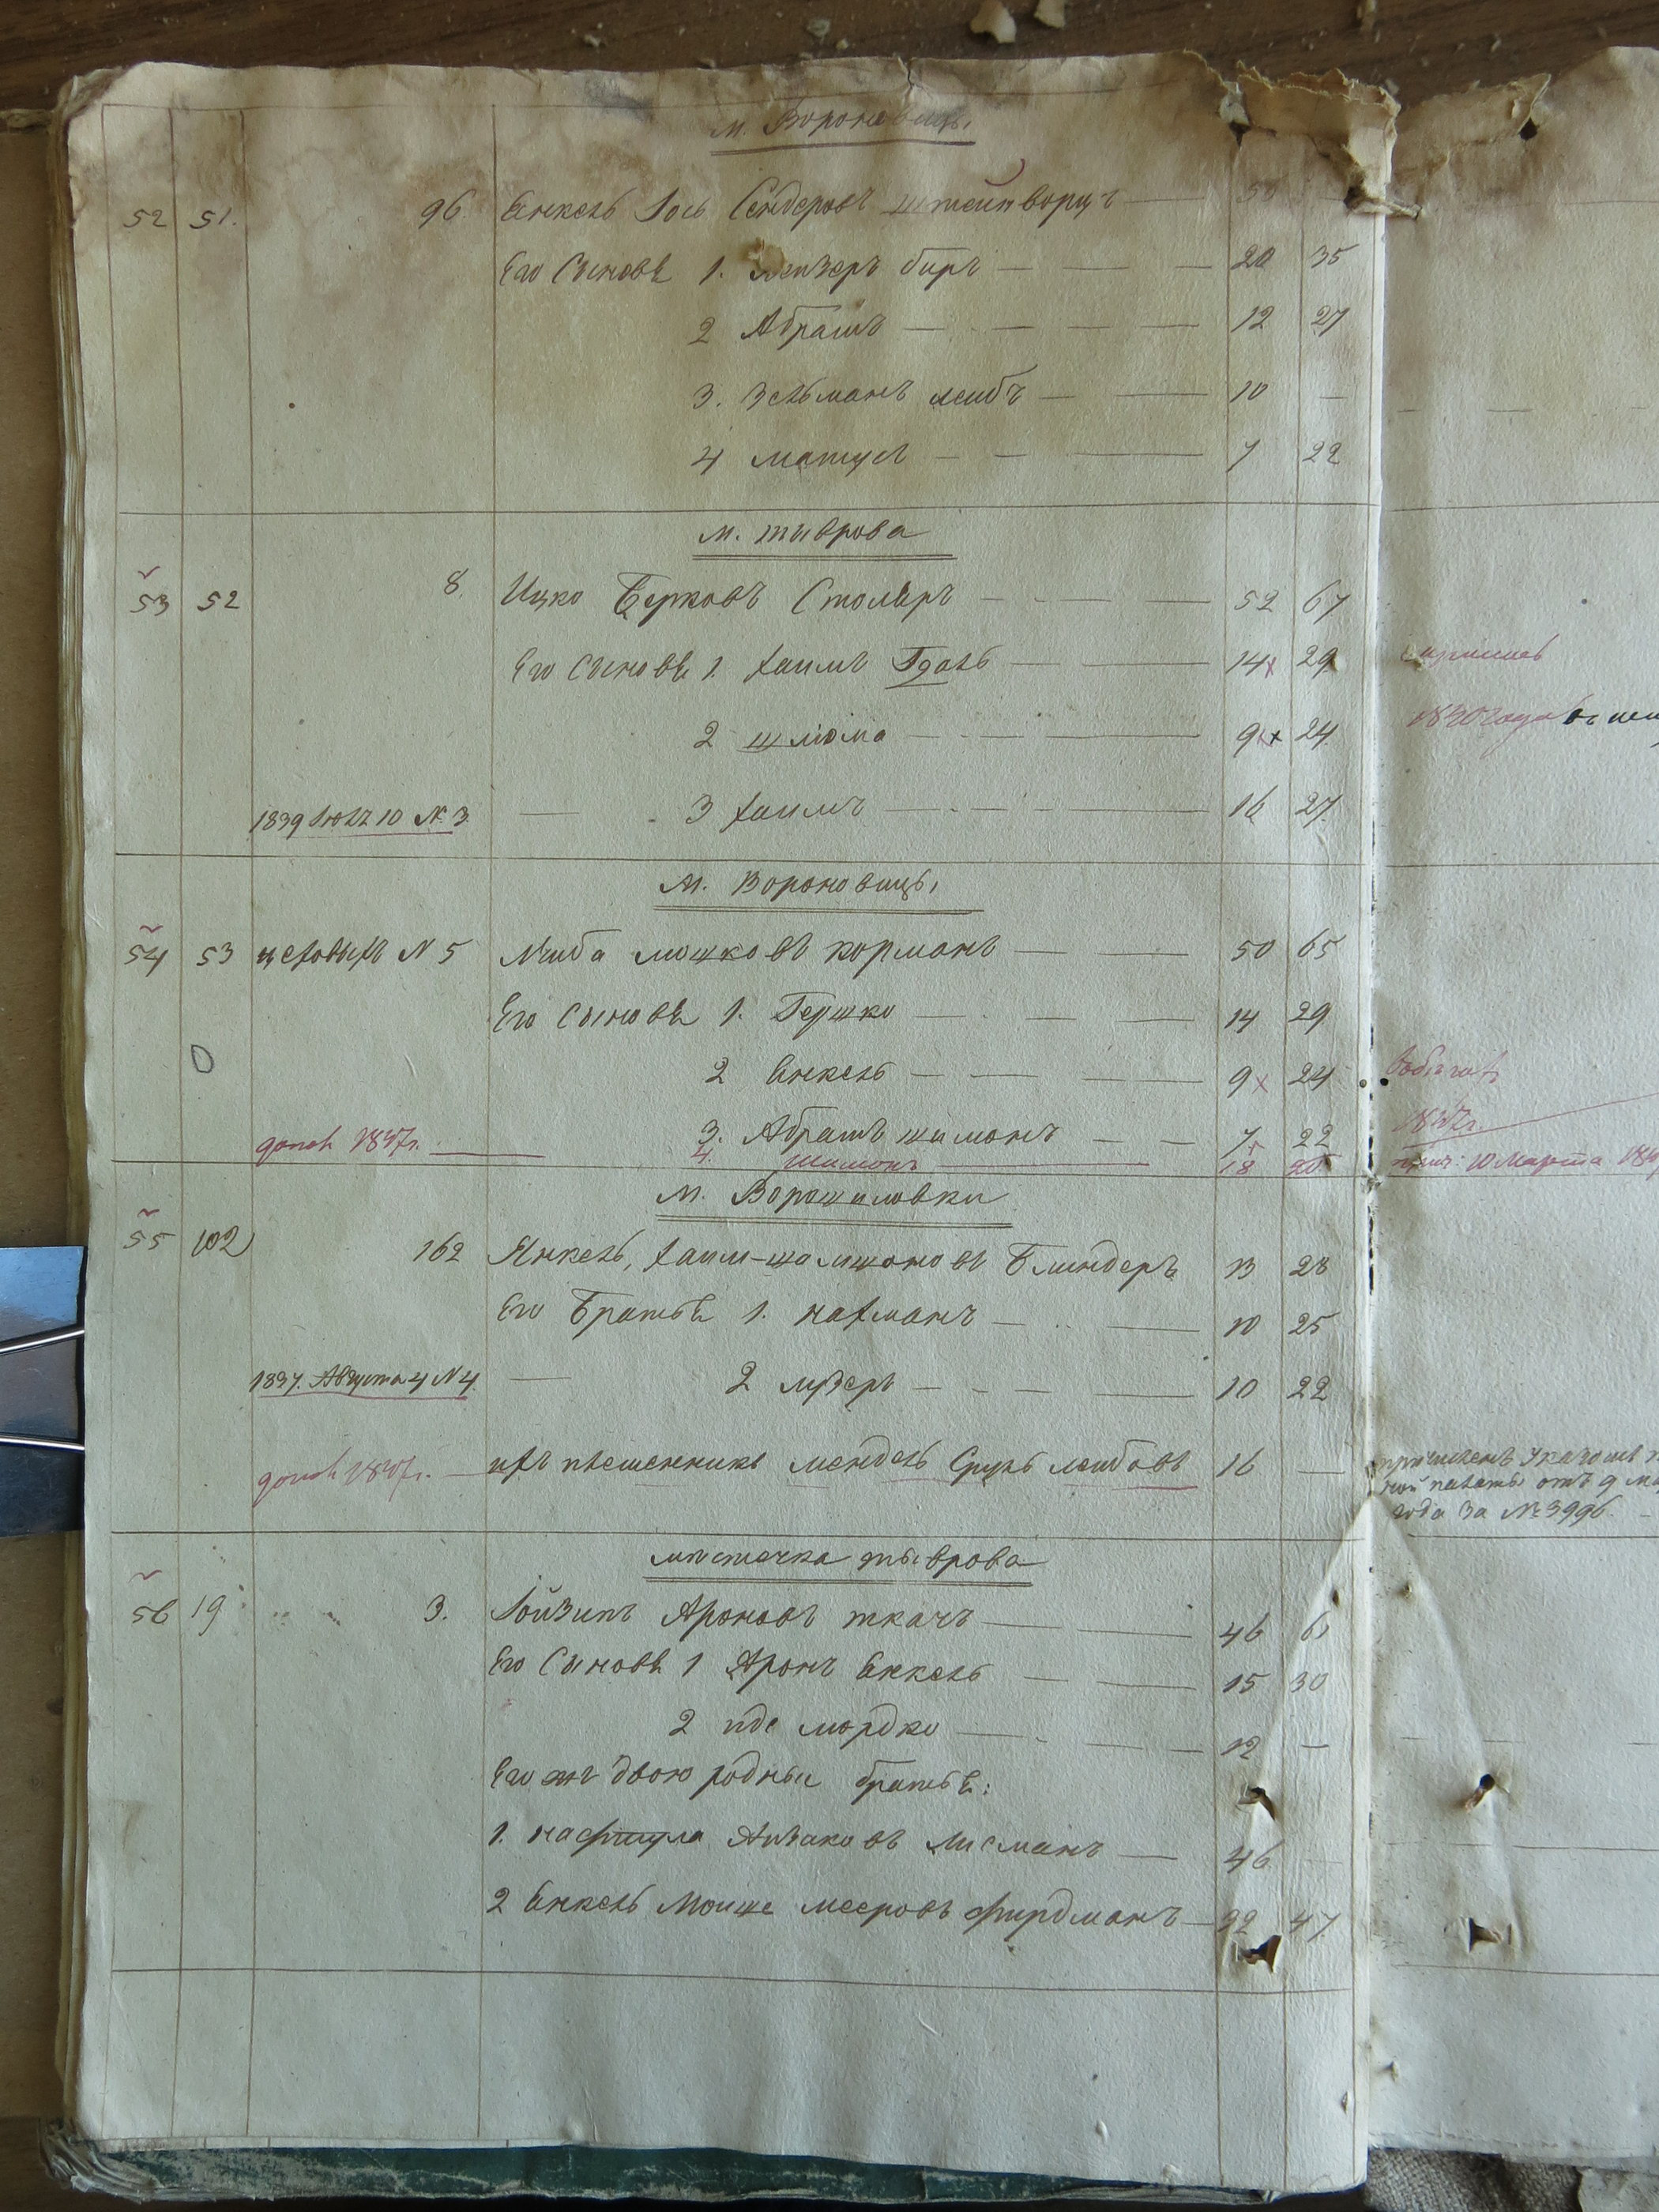 м. Вороновицы
52 51. 96. Янкель Іось Сендеровъ Штейнворцъ
Его Сыновья 1. Лейзеръ биръ 20 35
2 Абрамъ 12 27
3. Зельманъ лейбъ 10
4 матус 7 22
м. тиврова
53 52 8. Ицко Берковъ Столяръ 52 67
Его Сыновья 1. хаимъ Гдаль 14 29
2 шліома 9 24
1839 10 № 3. 3 хаимъ 16 27
м. Вороновицы
54 53 цеховыхъ N 5 Либа мошковъ корманъ 50 65
Его Сыновья 1. Гершко 14 29
2 Янкель 9 24
допол 1847г. 3. Абрамъ шимонъ 7 22
4. шимонъ 18 20
м. Ворошиловки
55 102 162 Янкель, хаим-шалшоновъ Блиндеръ 13 28
Его Братья 1. нахманъ 10 25
1837. Августа 4 N 4. 2 лузеръ 10 22
допол 1847г. ихъ племенникъ мендель Сруль лейбовъ 16
года за № 3996.
мѣстечка тыврова
56 19 3. Іойзипъ Ароновъ ткачъ 46 61
Его Сыновья 1 Аронъ Янкель 15 30
2 иде мордко 12
Его жъ двоюродныи братья:
1. нафтула Аизаковъ Лисманъ 46
2 Янкель Моише мееровъ фирдманъ 32 47